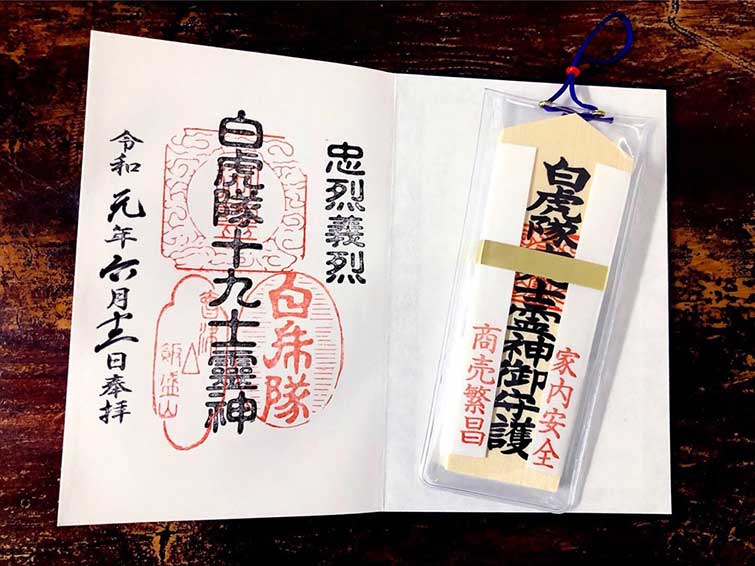 忠烈義烈
白虎隊十九士靈神
白虎隊
會津
飯盛山
令和元年六月十二日奉拝
白虎隊
士霊神御守護
家内安全
商売繁昌